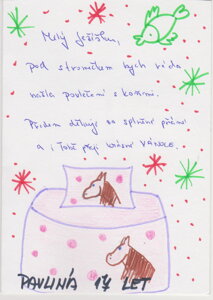 Milý Ježíšku,
pod stromečkem bych ráda
našla povlečení s koňmi.
Předem děkuji za splněné přání
a i Tobě přeji krásné VÁNOCE.
PAVLÍNA 17 LET